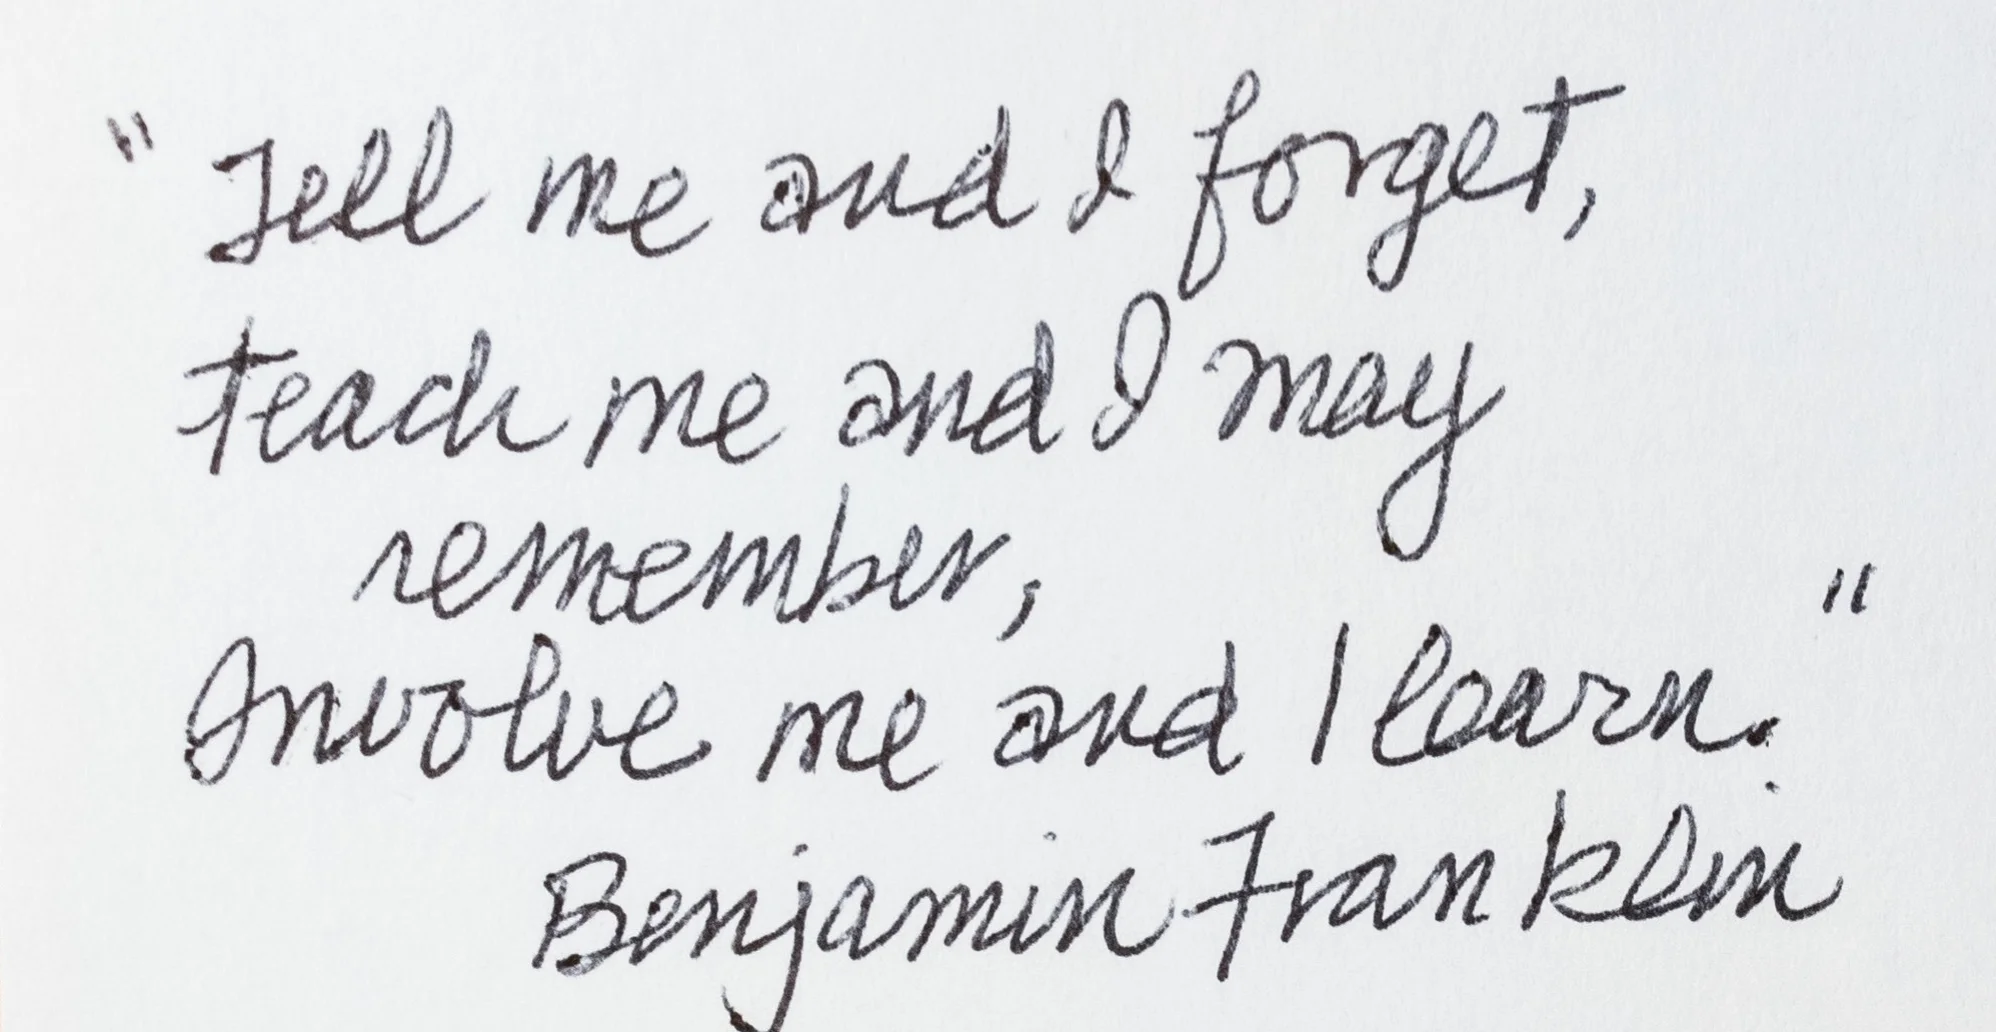 "Tell me and I forget,
teach me and I may
remember,
Involve me and I learn."
Benjamin Franklin